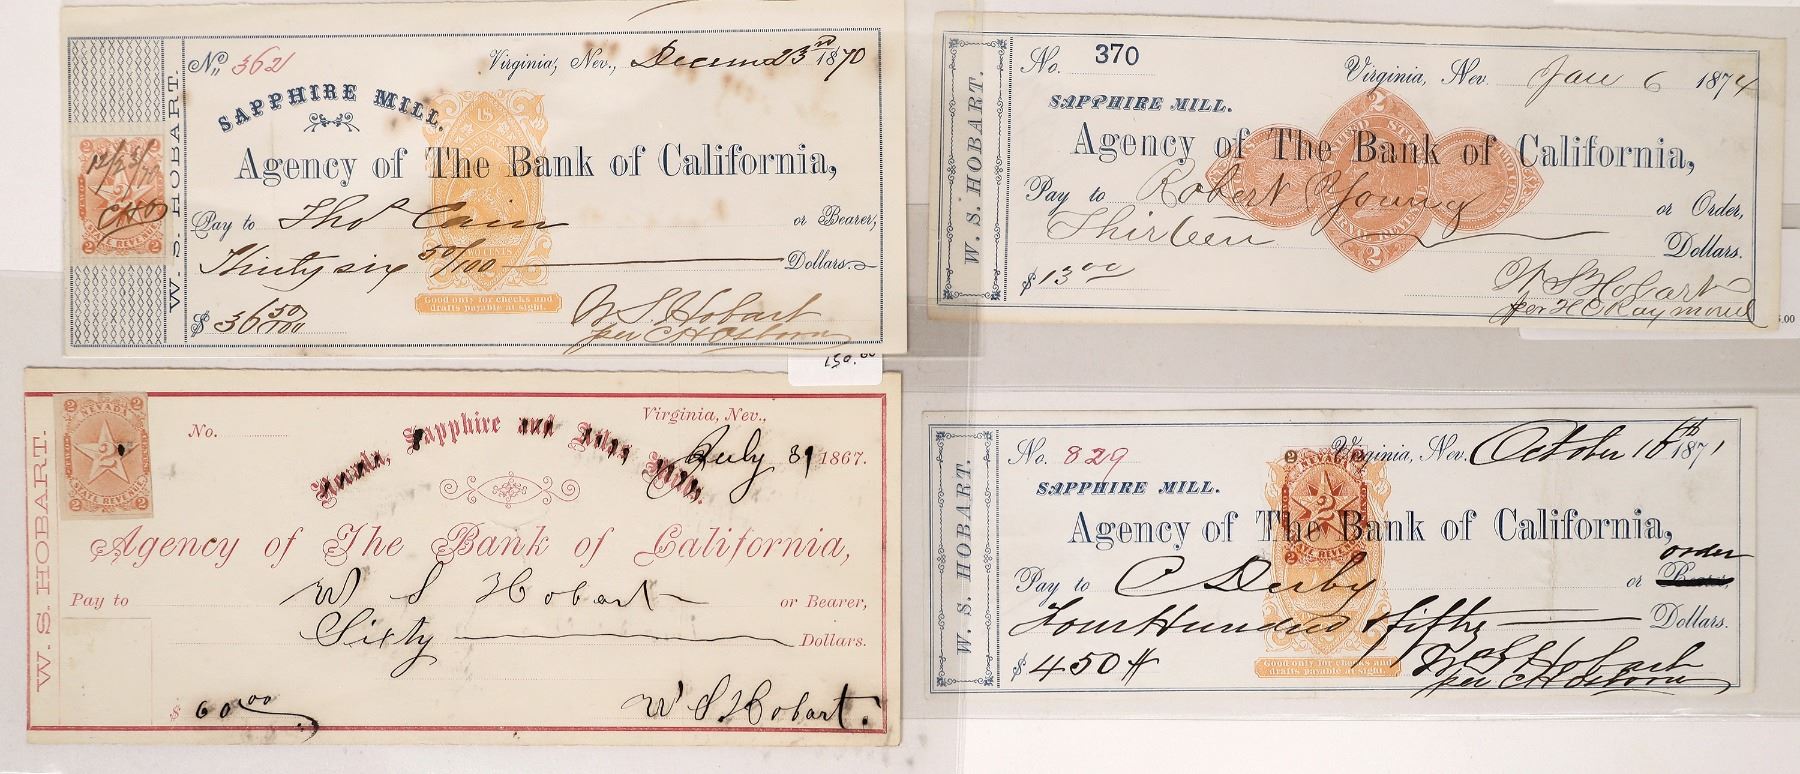 W. S. HOBART.
No. 362 Virginia, Nev., Decem 23rd 1870
SAPPHIRE MILL.
Agency of The Bank of California,
Pay to Thos Cain or Bearer,
Thirty six 50/100 Dollars.
$ 36 50/100
W S Hobart
per C H Osborn
12/23/70
CHO
2 2
STATE REVENUE
2 2
18
TWO CENTS
Good only for checks and
drafts payable at sight.
W. S. HOBART.
No. 370 Virginia, Nev. Jan 6 1874
SAPPHIRE MILL.
Agency of The Bank of California,
Pay to Robert Young or Order,
Thirteen Dollars.
$ 13 00
W S Hobart
per H C Raymond
2
UNITED STATES
2
5.00
150.00
W. S. HOBART.
2 NEVADA 2
STATE REVENUE
2 2
No. Virginia, Nev.,
July 31 1867.
Nevada, Sapphire and Atlas Mills.
Agency of The Bank of California,
Pay to W S Hobart or Bearer,
Sixty Dollars.
$ 60 00
W S Hobart.
W. S. HOBART.
No. 829 Virginia, Nev. October 18th 1871
SAPPHIRE MILL.
Agency of The Bank of California,
order
Pay to C Derby or Bearer,
Four Hundred & fifty Dollars.
$ 450
W S Hobart
per C H Osborn
2 NEVADA 2
2
STATE REVENUE
2 2
Good only for checks and
drafts payable at sight.